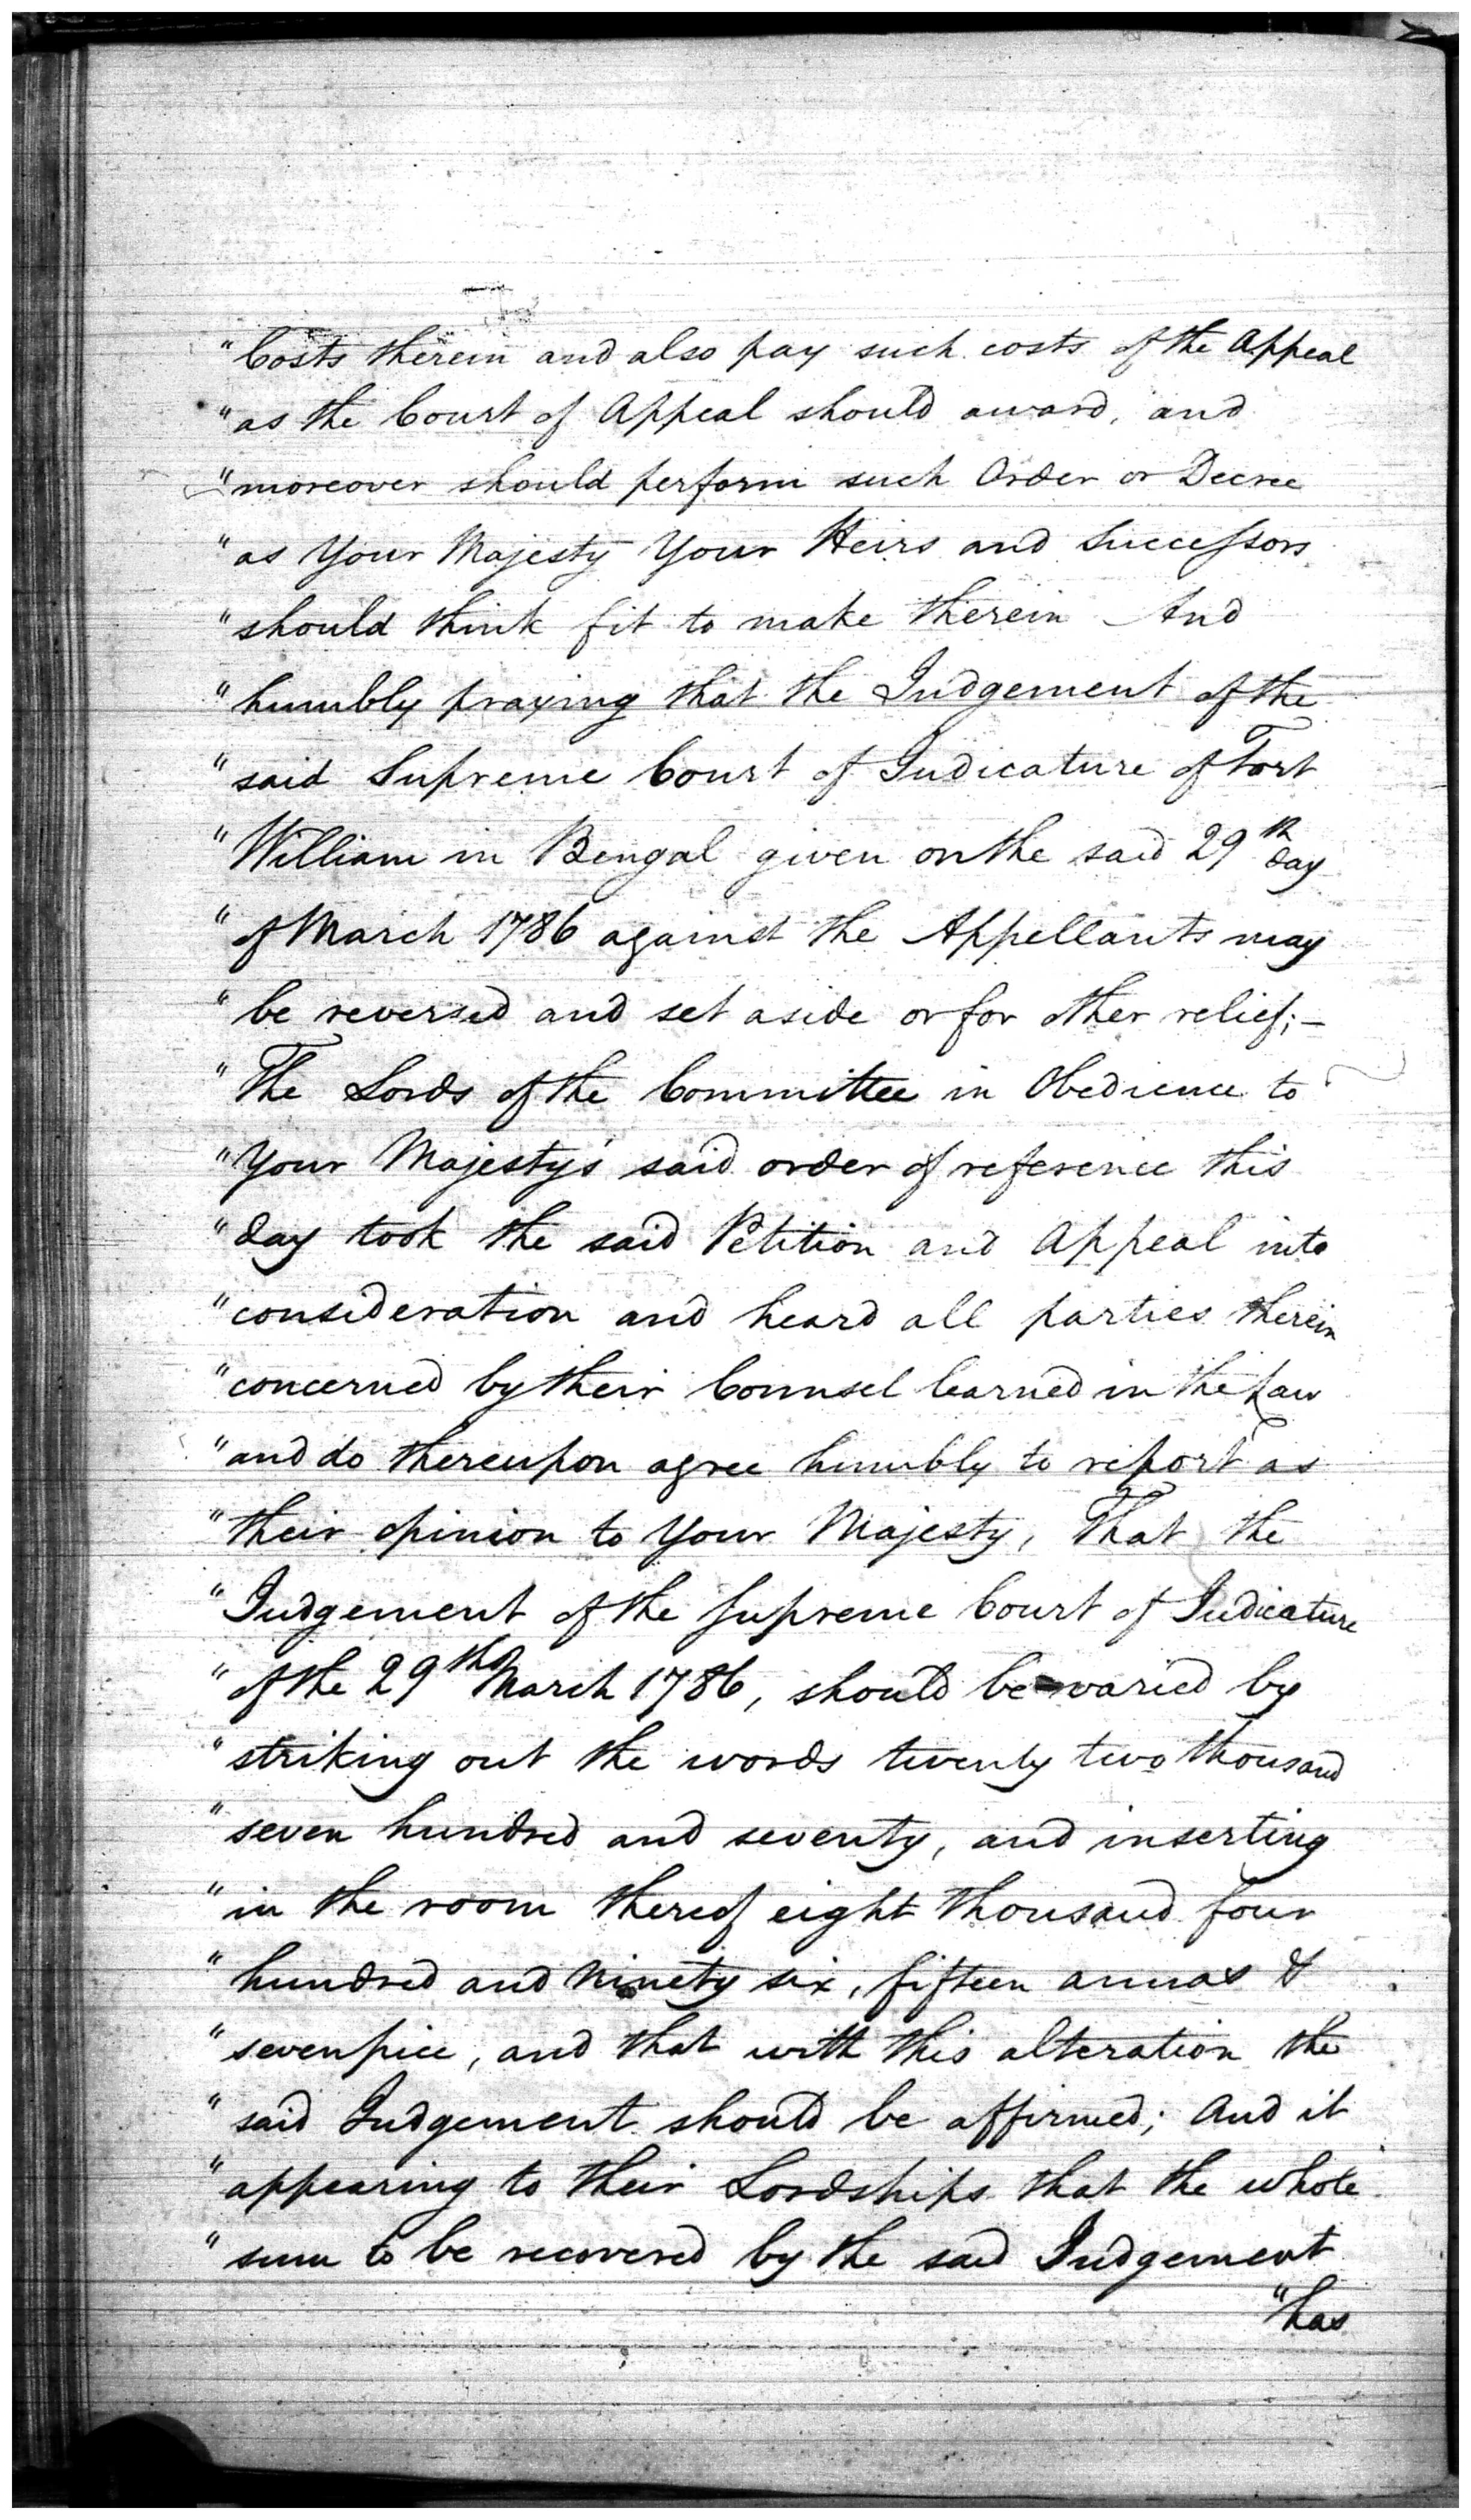 "Costs therein and also pay such costs of the Appeal
"as the Court of Appeal should award, and
"moreover should perform such Order or Decree
"as Your Majesty Your Heirs and Successors
"should think fit to make therein And
"humbly praying that the Judgement of the
"said Supreme Court of Judicature of Fort
"William in Bengal given on the said 29th day
"of March 1786 against the Appellants may
"be reversed and set aside or for other relief;—
"The Lords of the Committee in Obedience to
"Your Majesty's said order of reference this
"day took the said Petition and Appeal into
"consideration and heard all parties therein
"concerned by their Counsel learned in the Law
"and do thereupon agree humbly to report as
"their opinion to Your Majesty, That the
"Judgement of the Supreme Court of Judicature
"of the 29th March 1786, should be varied by
"striking out the words twenty two thousand
"seven hundred and seventy, and inserting
"in the room thereof eight thousand four
"hundred and ninety six, fifteen annas &
"seven pice, and that with this alteration the
"said Judgement should be affirmed; And it
"appearing to their Lordships that the whole
"sum to be recovered by the said Judgement
"has